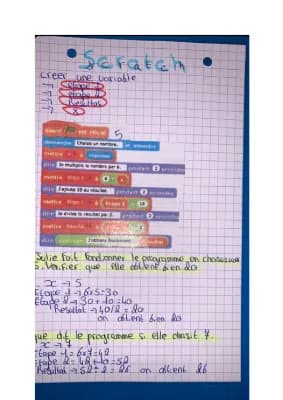 Scratch
créer une variable
→ étape 1
→ étape 2
→ Résultat
→ x
quand est cliqué
5
demander Choisis un nombre. et attendre
mettre x à réponse
dire Je multiplie le nombre par 6. pendant 2 secondes
mettre Etape 1 à 6 * x
dire J'ajoute 10 au résultat. pendant 2 secondes
mettre Etape 2 à Etape 1 + 10
dire Je divise le résultat par 2. pendant 2 secondes
mettre Résultat à Etape 2 / 2
dire J'obtiens finalement Résultat
Julie fait fonctionner le programme en choisissant
5. Vérifier que elle obtient bien 20
x → 5
Etape 1 → 6x5=30
Etape 2 → 30+10=40
Résultat → 40/2=20
on obtient bien 20
que dit le programme si elle choisit 7.
x → 7
Etape 1 = 6x7=42
Etape 2 = 42+10=52
Résultat → 52÷2=26 on obtient 26